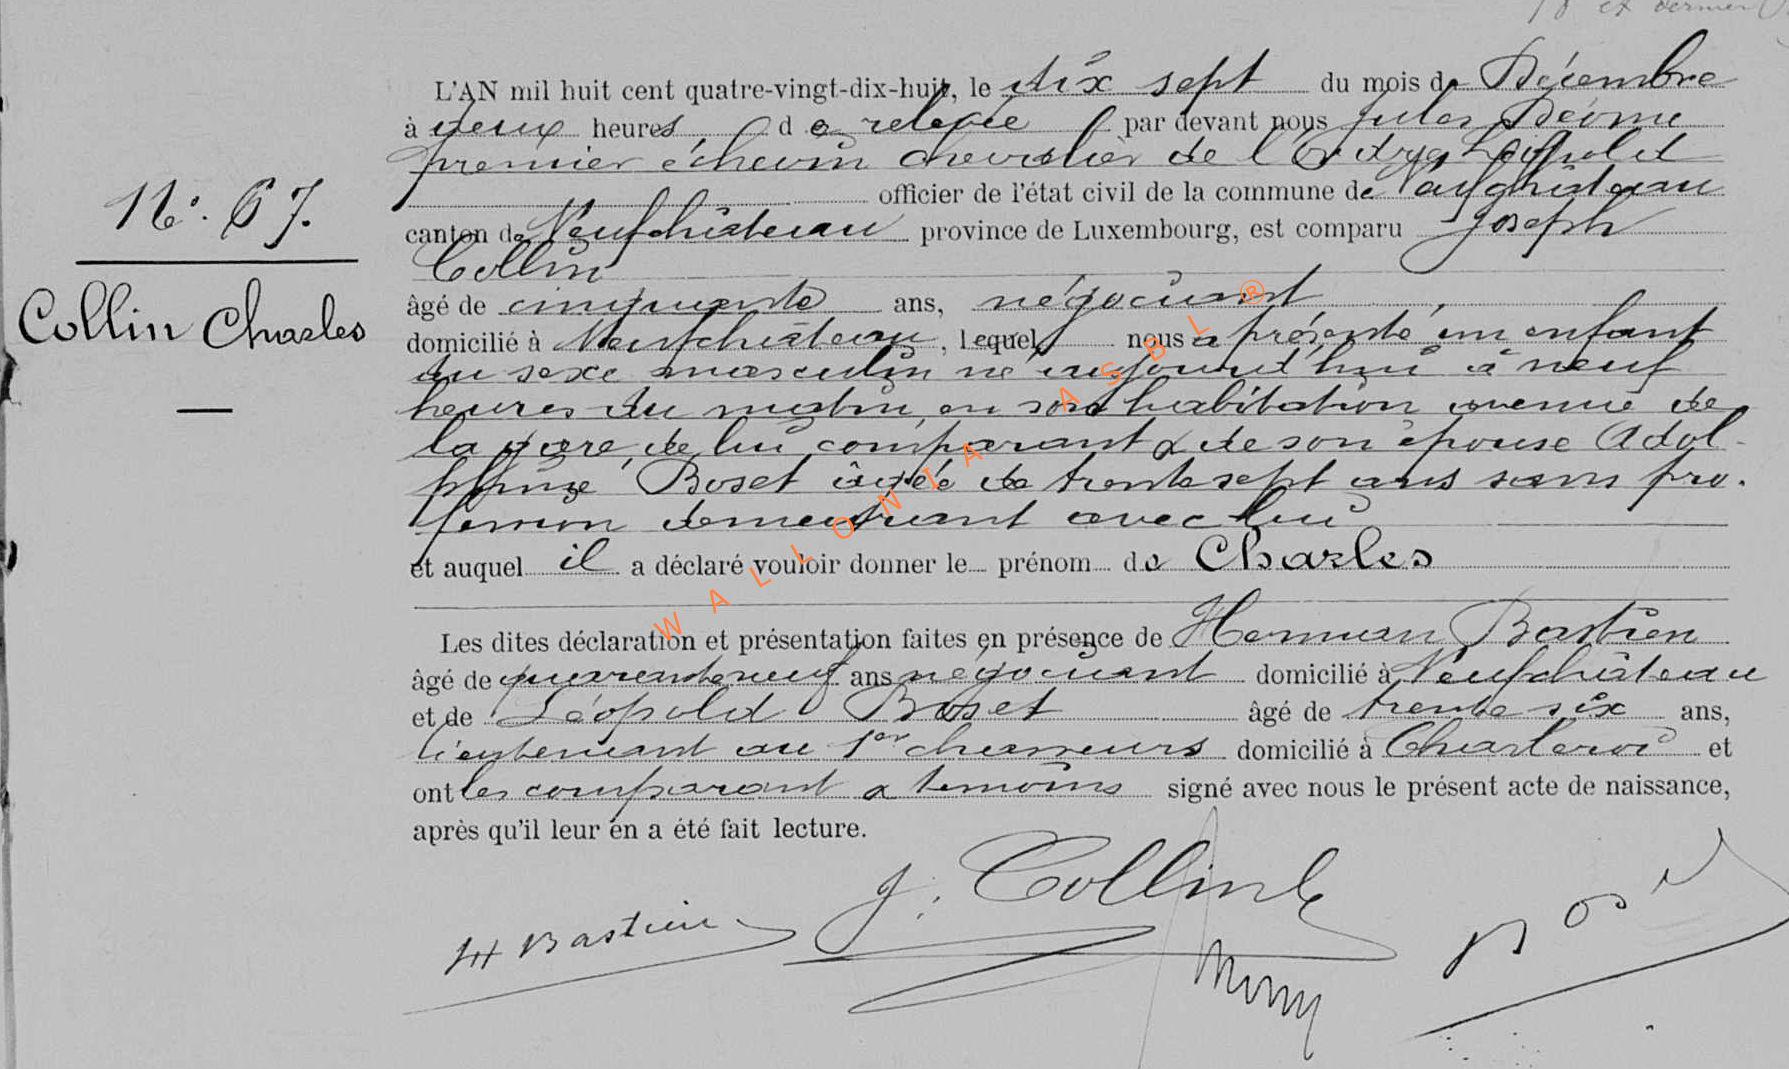 et dernier
L'AN mil huit cent quatre-vingt-dix-huit, le dix sept du mois de Décembre
à deux heures de relevée par devant nous Jules
premier échevin chevalier de l'Ordre Léopold
officier de l'état civil de la commune de Neufchâteau
canton de Neufchâteau province de Luxembourg, est comparu Joseph
Collin
âgé de cinquante ans, négociant
domicilié à Neufchâteau, lequel nous a présenté un enfant
du sexe masculin né aujourd'hui à neuf
heures du matin en son habitation avenue de
la gare, de lui comparant & de son épouse Adol-
phine Boset âgée de trente sept ans sans pro-
fession demeurant avec lui
et auquel il a déclaré vouloir donner le prénom de Charles
Les dites déclaration et présentation faites en présence de Herman Bastien
âgé de quarante neuf ans négociant domicilié à Neufchâteau
et de Léopold Boset âgé de trente six ans,
lieutenant au 1er chasseurs domicilié à Charleroi et
ont les comparant & témoins signé avec nous le présent acte de naissance,
après qu'il leur en a été fait lecture.
No. 67.
Collin Charles
J. Collin
H Bastien
WALLONIA ASBL ®